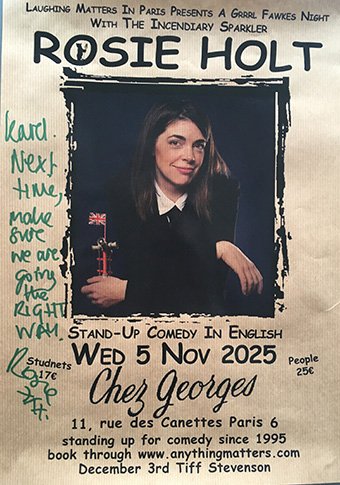 Laughing Matters In Paris Presents A Grrrl Fawkes Night
With The Incendiary Sparkler
Rosie Holt
Karel.
Next
time,
make
sure
we are
going
the
RIGHT
WAY.
Rosie
Stand-Up Comedy In English
Studnets
17€
Wed 5 Nov 2025
People
25€
Chez Georges
11, rue des Canettes Paris 6
standing up for comedy since 1995
book through www.anythingmatters.com
December 3rd Tiff Stevenson